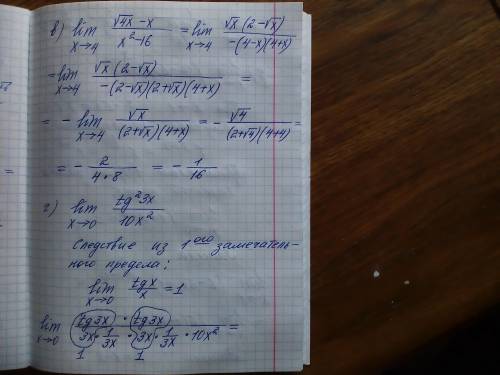 в) lim x→4 (√4x - x)/(x² - 16) = lim x→4 (√x (2-√x))/(-(4-x)(4+x))
= lim x→4 (√x (2-√x))/(-(2-√x)(2+√x)(4+x)) =
= - lim x→4 √x/((2+√x)(4+x)) = - √4/((2+√4)(4+4)) =
= - 2/(4·8) = - 1/16
г) lim x→0 tg²3x/10x²
Следствие из 1ого замечатель-
ного предела:
lim x→0 tgx/x = 1
lim x→0 (tg3x · tg3x)/(3x · 1/3x · 3x · 1/3x · 10x²) =
1 1
=